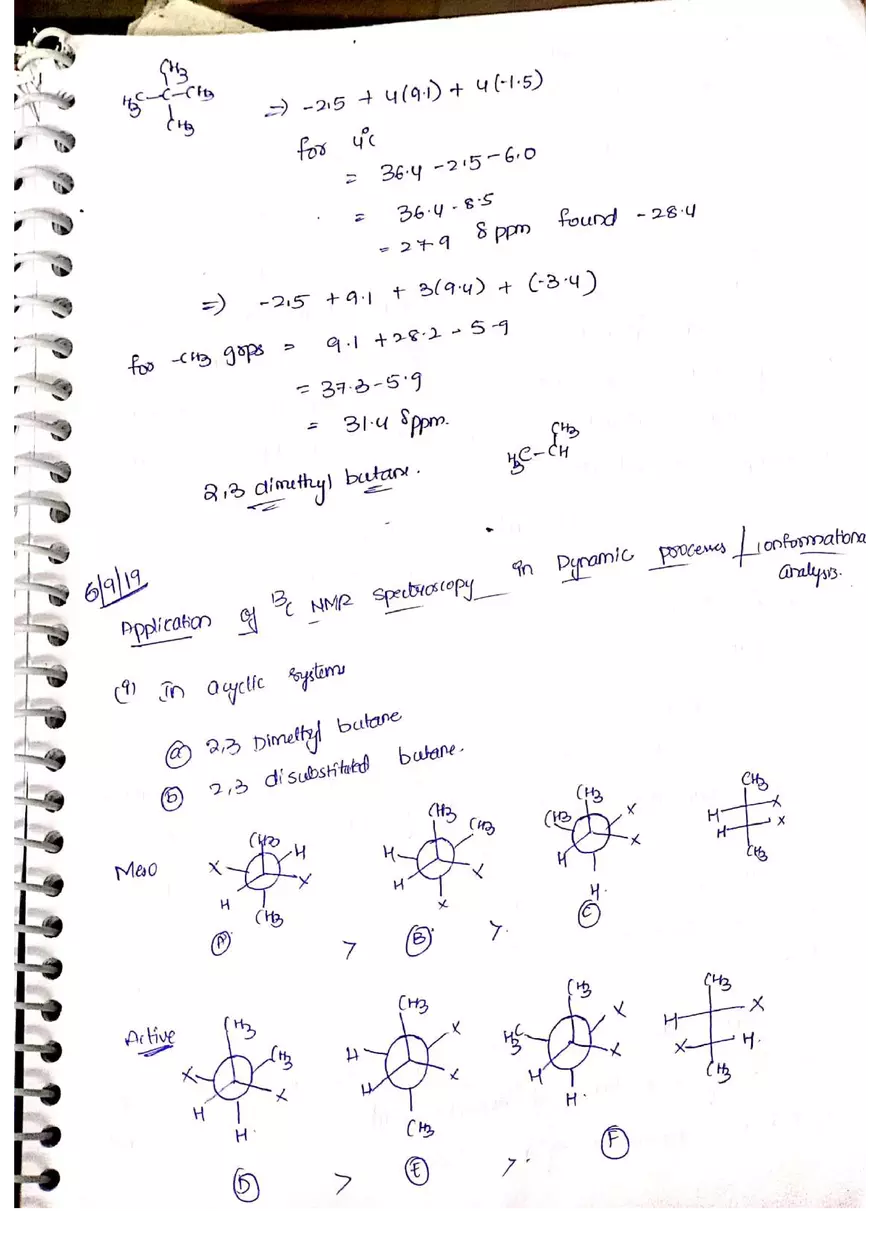 CH3
H3C-C-CH3
CH3
=> -2.5 + 4(9.1) + 4(-1.5)
for 4°C
= 36.4 -2.5-6.0
= 36.4 - 8.5
= 27.9 δ ppm found - 28.4
=> -2.5 + 9.1 + 3(9.4) + (-3.4)
for -CH3 grps = 9.1 + 28.2 - 5.9
= 37.3 - 5.9
= 31.4 δ ppm.
CH3
H3C-CH
2,3 dimethyl butane.
6/9/19
Application of 13C NMR Spectroscopy in Dynamic processes / conformationa
analysis.
(i) In acyclic systems
(a) 2,3 Dimethyl butane
(b) 2,3 disubstituted butane.
Meso
CH3 H X X H CH3
CH3 CH3 H X H X
CH3 X CH3 X H H
CH3 H X H X CH3
(A) > (B) > (C)
Active
CH3 CH3 X X H H
CH3 X H X H CH3
CH3 X H3C X H H
CH3 H X X H CH3
(D) > (E) > (F)